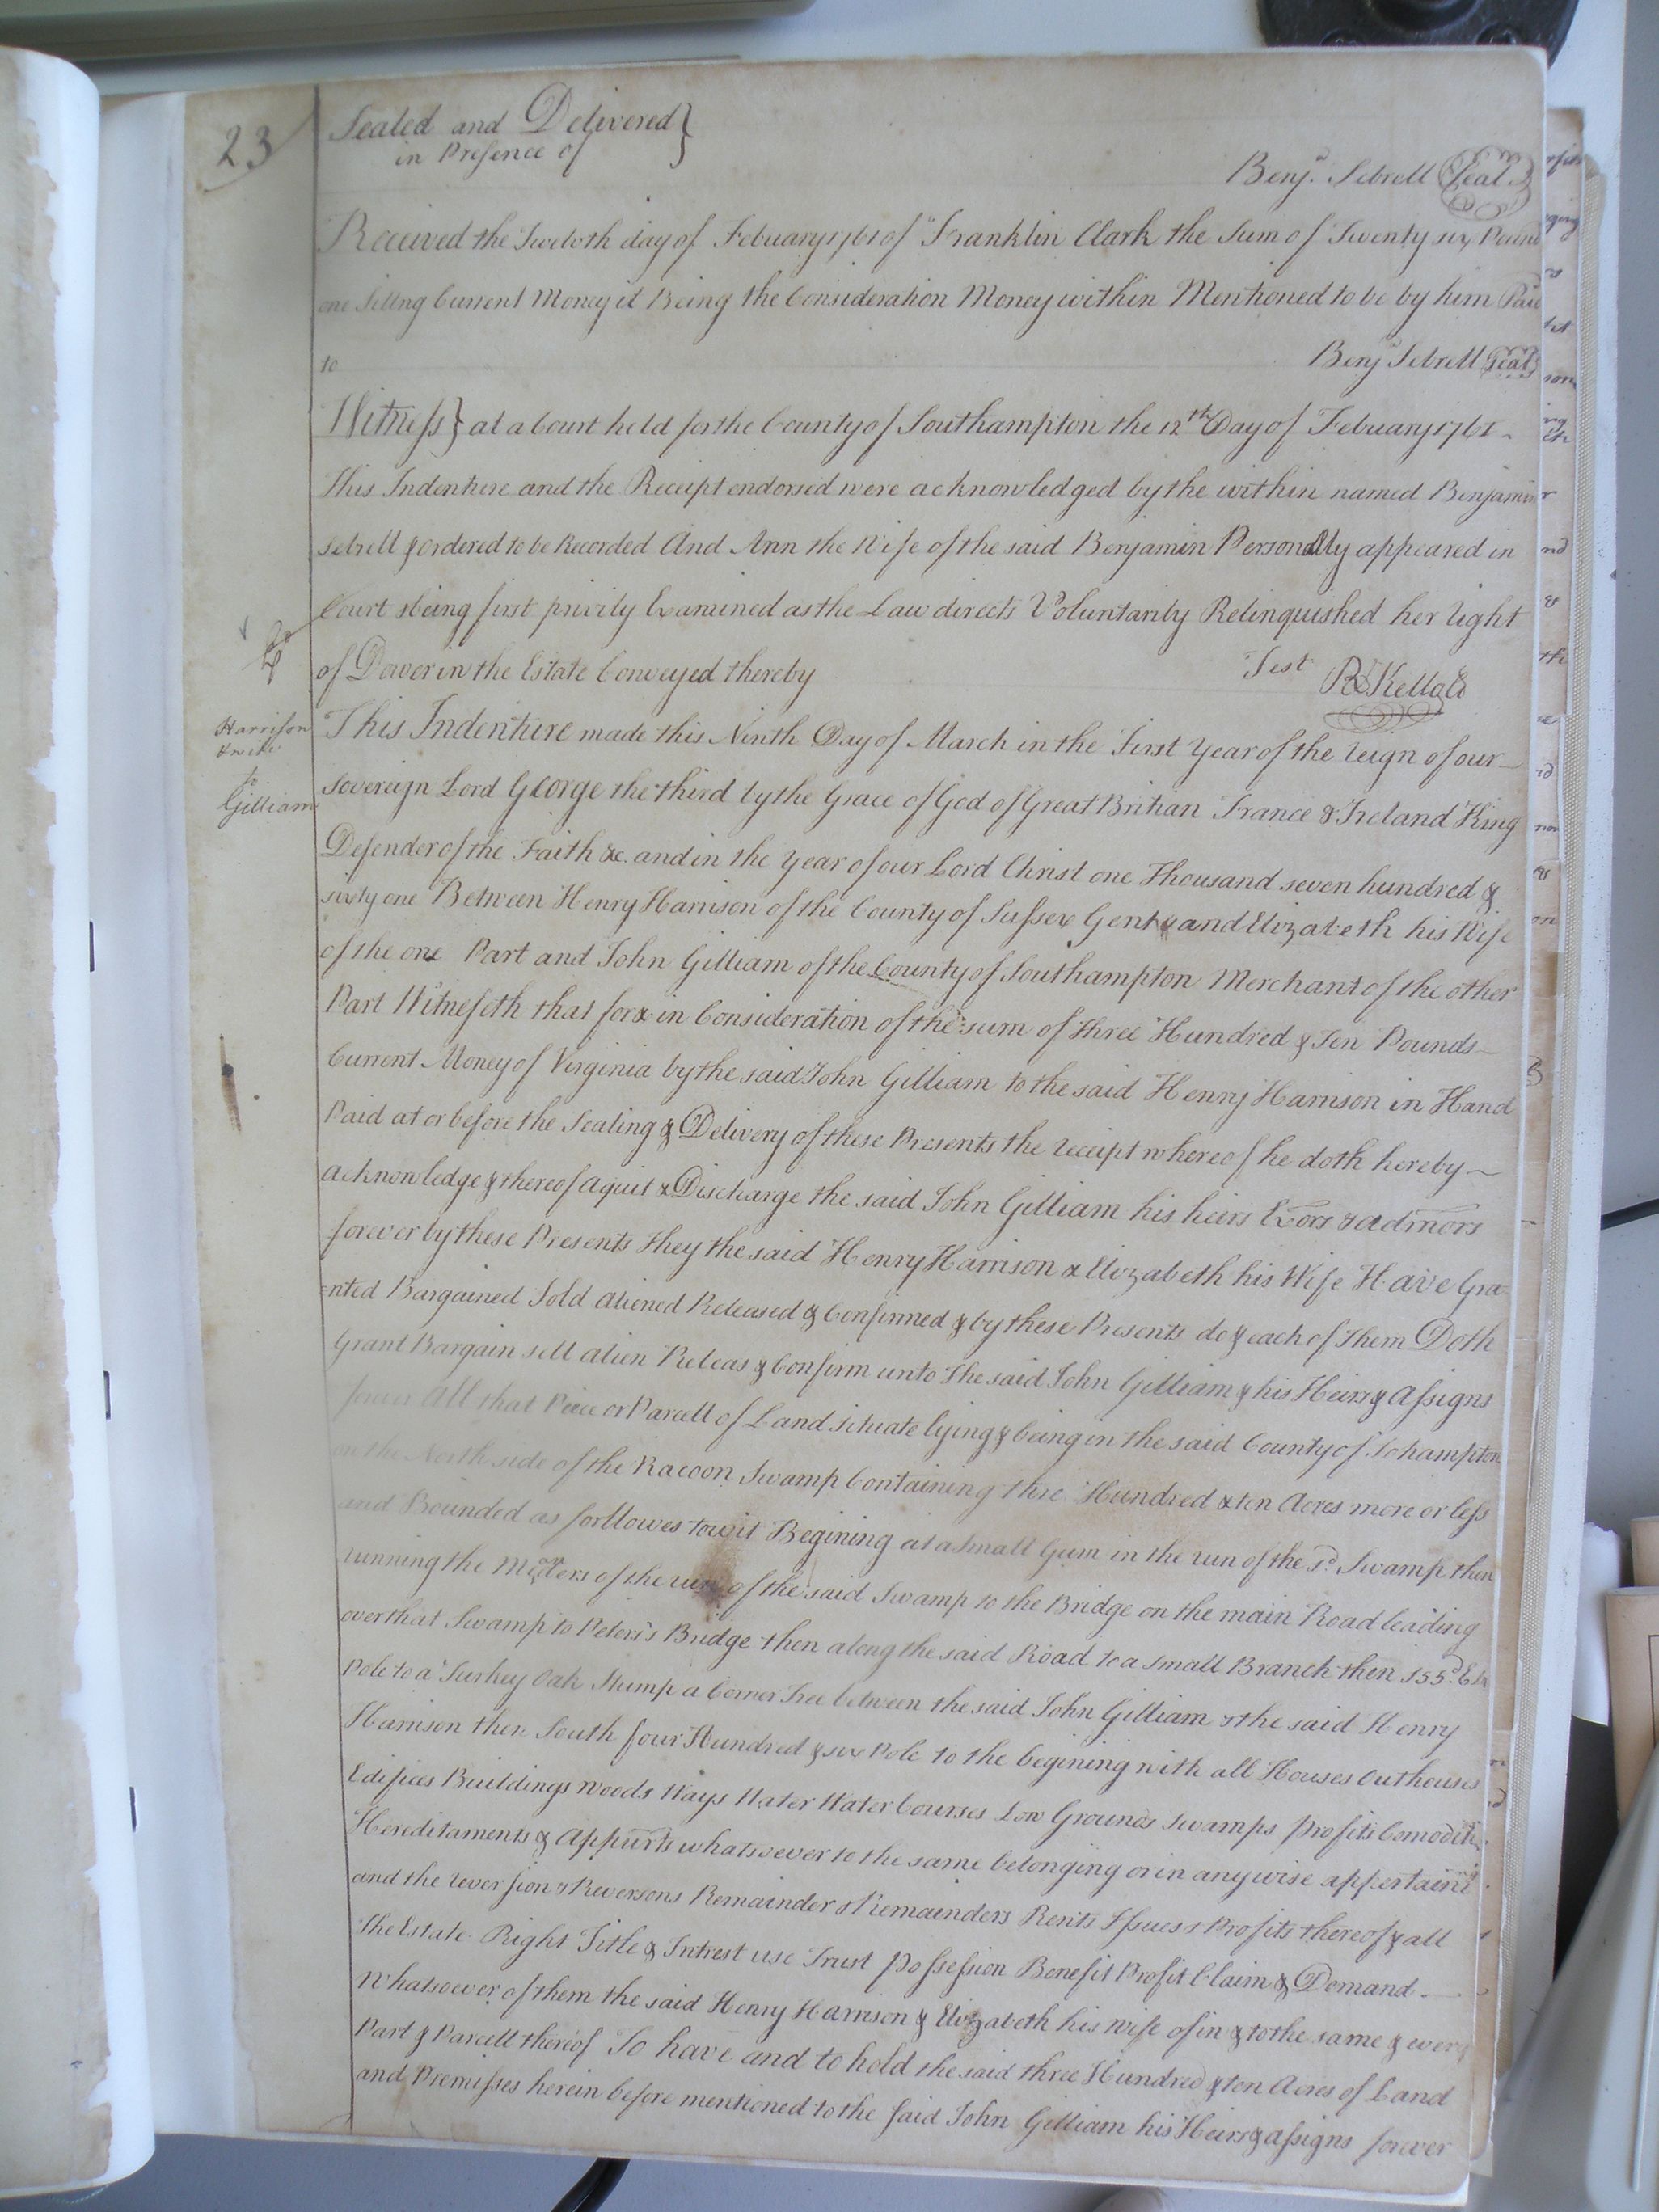 23
Sealed and Delivered }
in Presence of
Benj.ª Sebrell Seal
Received the Twelvth day of Febuary 1761 of Franklin Clark the Sum of Twenty six Pound
one Siling Current Money it Being the Consideration Money within Mentioned to be by him Paid
to
Benj.ª Sebrell Seal
Witness } at a Court held for the County of Southampton the 12th Day of Febuary 1761
This Indenture and the Receipt endorsed were acknowledged by the within named Benjamin
Sebrell & ordered to be Recorded And Ann the Wife of the said Benjamin Personally appeared in
Court she being first privity Examined as the Law directs Voluntarily Relinquished her Right
of Dower in the Estate Conveyed thereby
Test
Harrison
& wife
to
Gilliam
This Indenture made this Ninth Day of March in the First Year of the Reign of our
Sovereign Lord George the third by the Grace of God of Great Britian France & Ireland King
Defender of the Faith &c. and in the Year of our Lord Christ one Thousand seven hundred &
sixty one Between Henry Harrison of the County of Sussex Gent & and Elizabeth his Wife
of the one Part and John Gilliam of the County of Southampton Merchant of the other
Part Witnesseth that for & in Consideration of the sum of three Hundred & Ten Pounds
Current Money of Virginia by the said John Gilliam to the said Henry Harrison in Hand
Paid at or before the Sealing & Delivery of these Presents the receipt whereof he doth hereby
acknowledge & thereof aquit & Discharge the said John Gilliam his heirs Exors & admors
forever by these Presents they the said Henry Harrison & Elizabeth his Wife Have Gra
=nted Bargained Sold aliened Released & Confirmed & by these Presents do & each of them Doth
Grant Bargain sell alien Releas & Confirm unto the said John Gilliam & his Heirs & Assigns
forever All that Peice or Parcell of Land situate lying & being in the said County of Sohampton
on the North side of the Racoon Swamp Containing three Hundred & ten Acres more or less
and Bounded as forllowes towit Begining at a small Gum in the run of the sd. Swamp then
running the of the run of the said Swamp to the Bridge on the main Road leading
over that Swamp to Peters's Bridge then along the said Road to a small Branch then S 55d. E
Pole to a Turkey Oak Stump a Corner Tree between the said John Gilliam & the said Henry
Harrison then South four Hundred & six Pole to the begining with all Houses Outhouses
Edifices Buildings Woods Ways Water Water Courses Low Grounds Swamps Profits
Hereditaments & Appurts whatsoever to the same belonging or in anywise appertaining
and the reversion & Reversons Remainder & Remainders Rents Issues & Profits thereof & all
the Estate Right Title & Intrest use Trust Possession Benefit Profit Claim & Demand
Whatsoever of them the said Henry Harrison & Elizabeth his wife of in & to the same & every
Part & Parcell thereof To have and to hold the said three Hundred & ten Acres of Land
and Premisses herein before mentioned to the said John Gilliam his Heirs & assigns forever